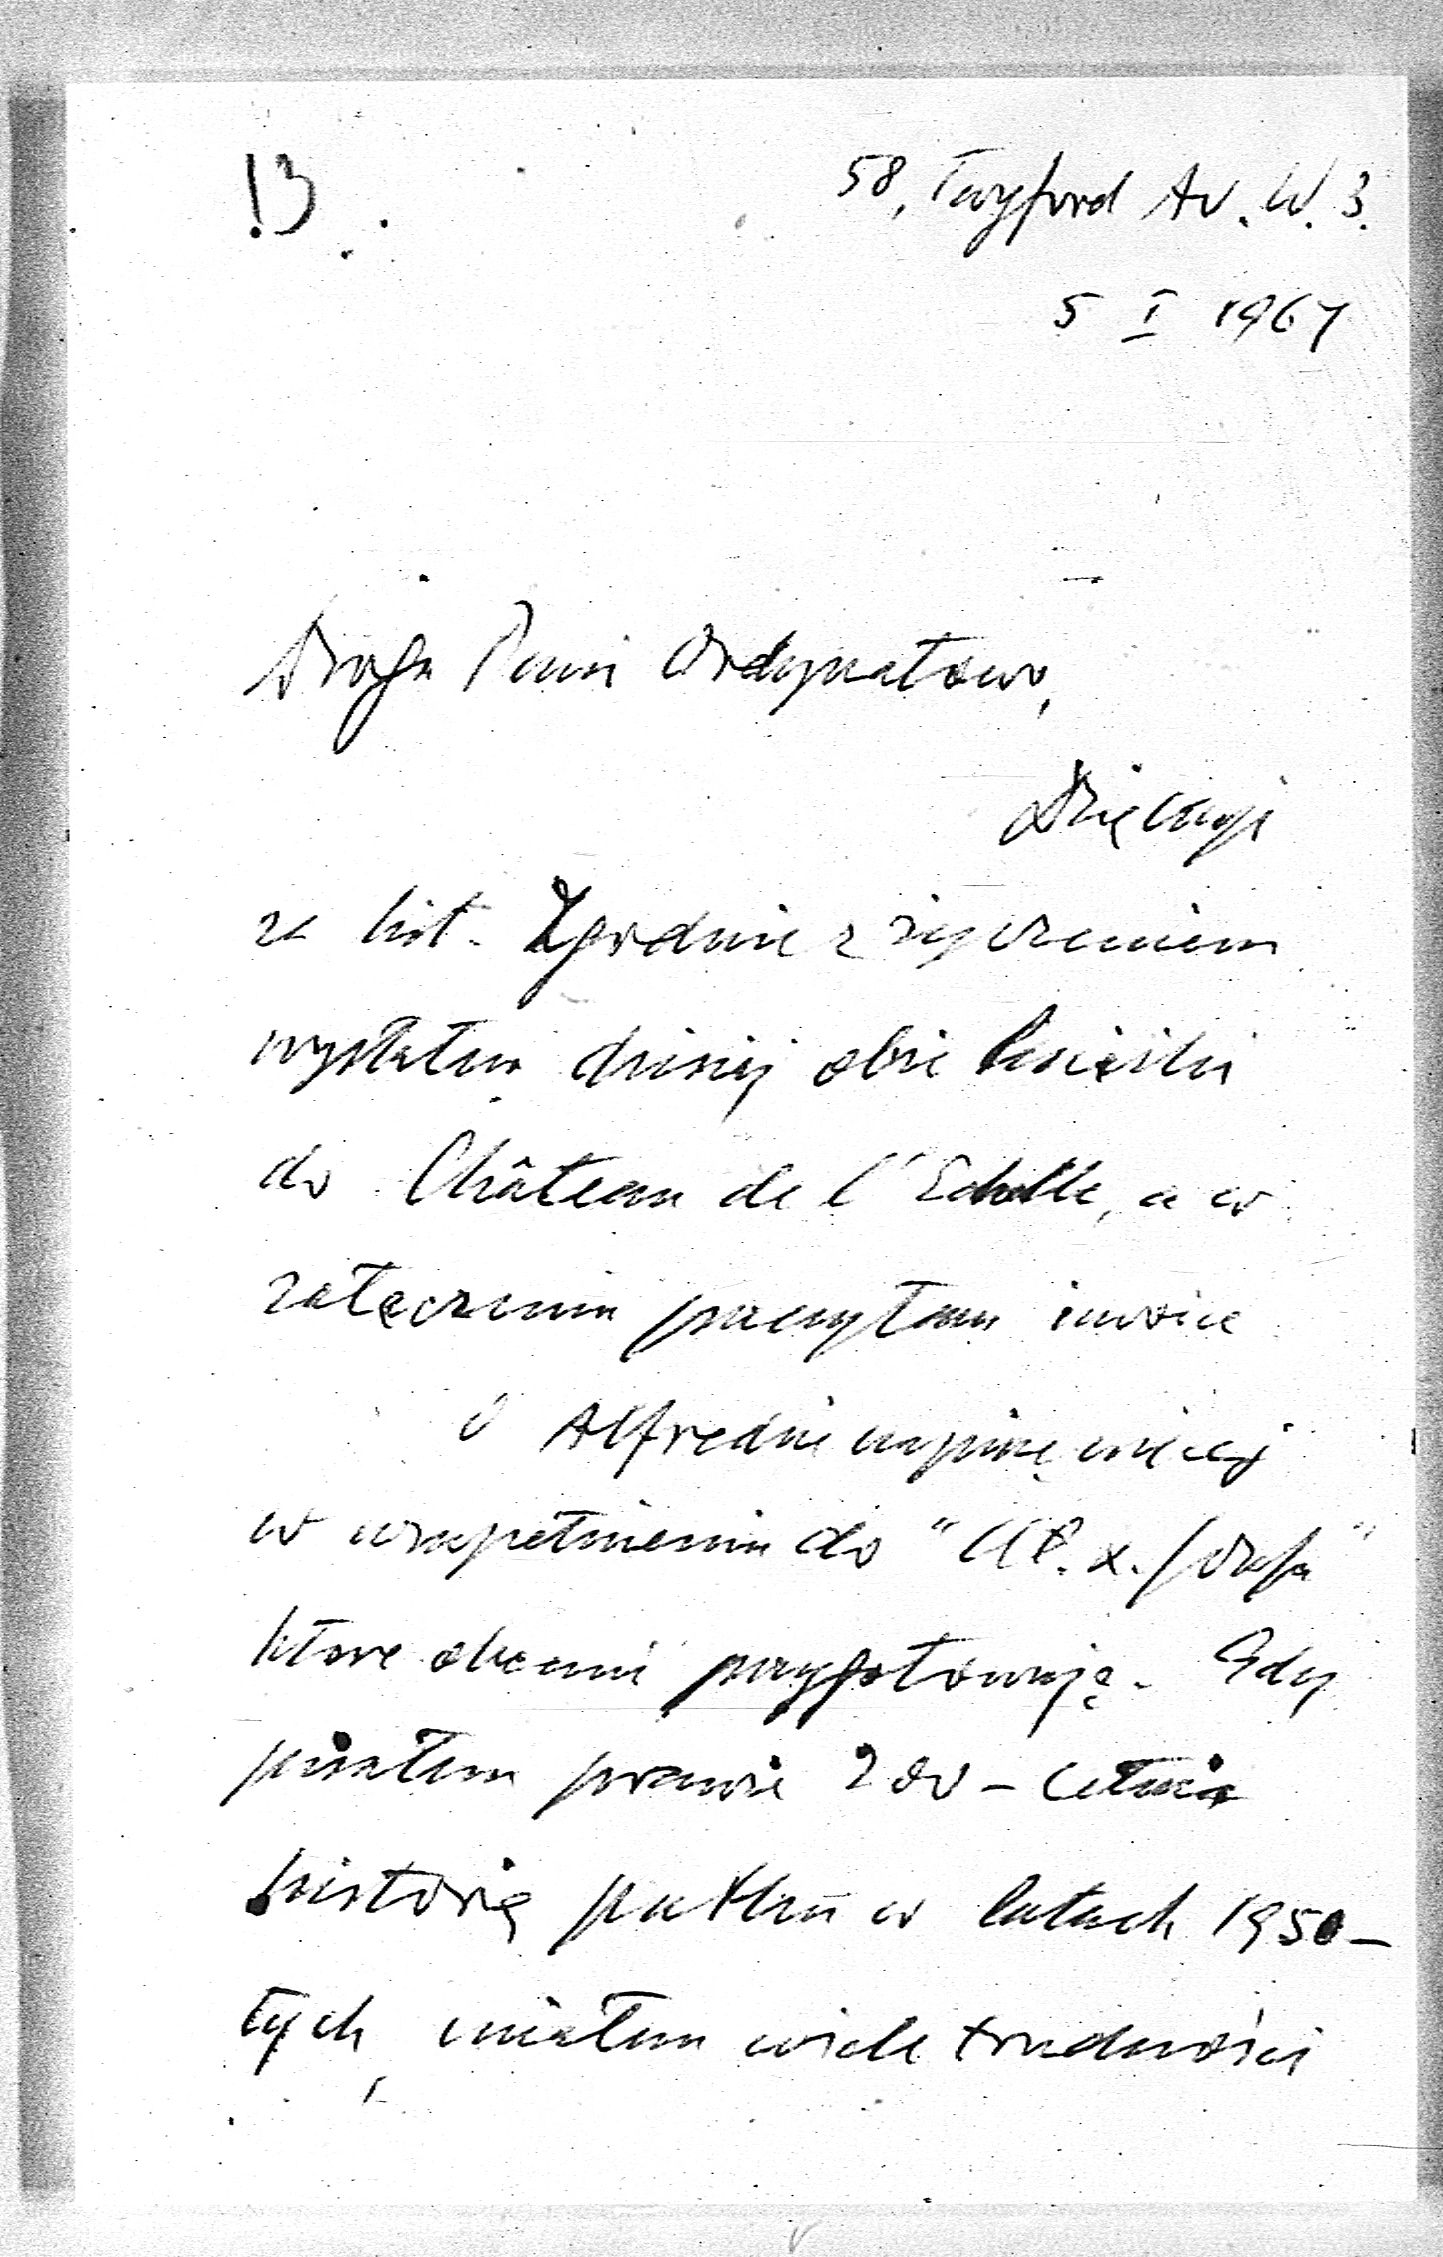 13
58, Twyford Av. W. 3.
5 I 1967
Droga Pani Ordynatowo,
Dziękuję
za list. Zgodnie z życzeniem
wysłałem dzisiaj obie książki
do Château de l'Echelle, a w
załączeniu przesyłam invoice
O Alfredzie napiszę więcej
w uzupełnieniu do "Ul. x.
które obecnie przygotowuję. Gdy
pisałem prawie 200-letnią
historię pułku w latach 1950-
tych, miałem wiele trudności